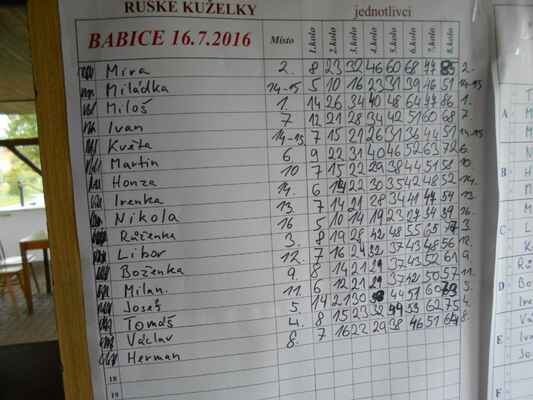 RUSKÉ KUŽELKY jednotlivci
BABICE 16.7.2016 Místo 1.kolo 2.kolo 3.kolo 4.kolo 5.kolo 6.kolo 7.kolo 8.kolo
Míra 2. 8 23 32 46 60 68 77 85 2.
Miládka 14-15 5 10 16 23 31 39 46 51 14-15
Miloš 1. 14 26 34 40 48 64 77 86 1.
Ivan 7 12 21 28 34 42 51 60 68 7.
Květa 14-15 7 15 21 26 31 36 44 51 14-15
Martin 6 9 22 31 40 46 52 63 72 6.
Honza 10 7 15 22 29 38 44 51 58 10
Irenka 14. 6 14 22 30 35 42 48 52 14.
Nikola 13. 7 14 21 28 34 41 47 54 13.
Růženka 16 5 10 14 19 23 27 34 39 16.
Libor 3. 8 19 28 42 48 55 65 3.
Boženka 12 7 16 24 32 37 43 48 56 12.
Milan 9. 8 14 21 29 37 43 52 61 9
Josef 11 6 12 21 29 37 42 50 57 11.
Tomáš 5. 14 21 30 44 51 60 5.
Václav 4. 8 15 23 32 53 62 75 4.
Herman 8. 7 16 22 29 38 46 51 64 8.
18
19
A
B
C
D
E
F